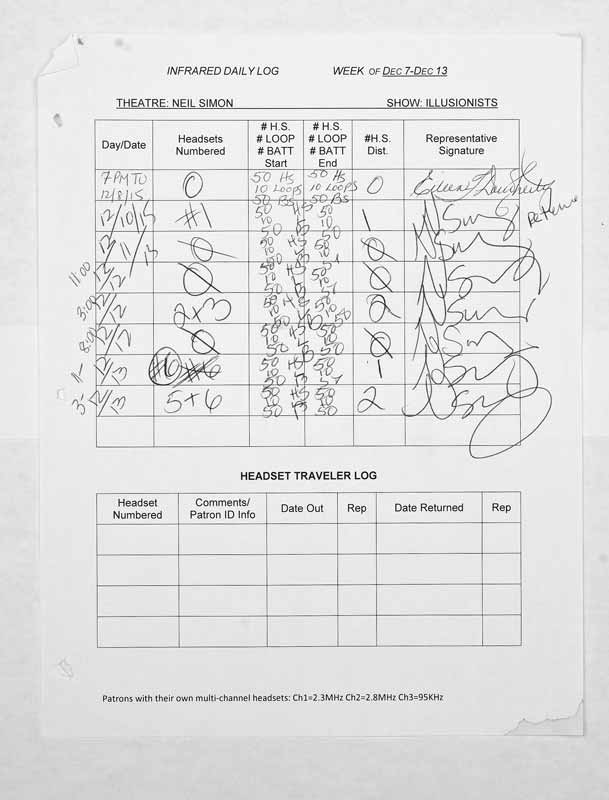 INFRARED DAILY LOG WEEK OF DEC 7-DEC 13
THEATRE: NEIL SIMON SHOW: ILLUSIONISTS
Day/Date Headsets Numbered # H.S. # LOOP # BATT Start # H.S. # LOOP # BATT End #H.S. Dist. Representative Signature
7PM TO 12/8/15 0 50 HS 10 LOOPS 50 BS 50 HS 10 LOOPS 50 BS 0
12/10/15 #1 50 10 50 HS L B 50 10 50 1
12/11/15 0 50 10 50 HS L B 50 10 50 0
11:00 12/12 0 50 10 50 HS L B 50 10 0
3:00 12/12 2+3 50 10 HS L B 50 10 50 2
8:00 12/12 0 50 10 50 HS L B 50 10 50 0
11- 12/13 #6 #6 50 10 50 HS L B 50 10 1
3- 12/13 5+6 50 10 50 HS L B 50 10 50 2
HEADSET TRAVELER LOG
Headset Numbered Comments/ Patron ID Info Date Out Rep Date Returned Rep
Patrons with their own multi-channel headsets: Ch1=2.3MHz Ch2=2.8MHz Ch3=95KHz